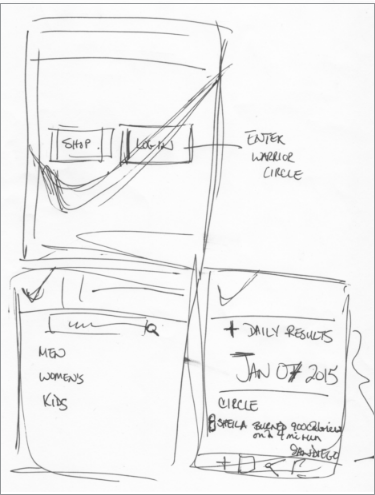 SHOP
LOGIN
ENTER
WARRIOR
CIRCLE
MEN
WOMENS
KIDS
+ DAILY RESULTS
JAN 07 2015
CIRCLE
SHEILA BURNED 900 Calories
on a 4 mi run
SAN DIEGO